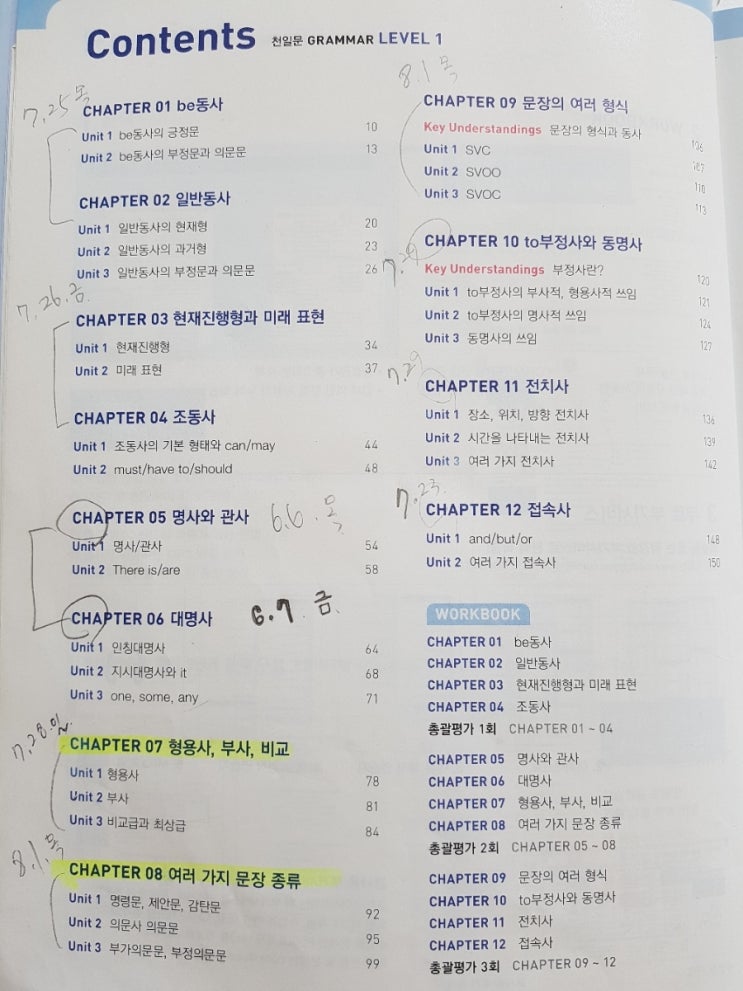 Contents 천일문 GRAMMAR LEVEL 1
7.25 목
CHAPTER 01 be동사
Unit 1 be동사의 긍정문 10
Unit 2 be동사의 부정문과 의문문 13
CHAPTER 02 일반동사
Unit 1 일반동사의 현재형 20
Unit 2 일반동사의 과거형 23
Unit 3 일반동사의 부정문과 의문문 26
7.26.금.
CHAPTER 03 현재진행형과 미래 표현
Unit 1 현재진행형 34
Unit 2 미래 표현 37
CHAPTER 04 조동사
Unit 1 조동사의 기본 형태와 can/may 44
Unit 2 must/have to/should 48
CHAPTER 05 명사와 관사 6.6.목
Unit 1 명사/관사 54
Unit 2 There is/are 58
CHAPTER 06 대명사 6.7.금.
Unit 1 인칭대명사 64
Unit 2 지시대명사와 it 68
Unit 3 one, some, any 71
7.28.일.
CHAPTER 07 형용사, 부사, 비교
Unit 1 형용사 78
Unit 2 부사 81
Unit 3 비교급과 최상급 84
8.1.목
CHAPTER 08 여러 가지 문장 종류
Unit 1 명령문, 제안문, 감탄문 92
Unit 2 의문사 의문문 95
Unit 3 부가의문문, 부정의문문 99
8.1 목
CHAPTER 09 문장의 여러 형식
Key Understandings 문장의 형식과 동사 106
Unit 1 SVC 107
Unit 2 SVOO 110
Unit 3 SVOC 113
7.29
CHAPTER 10 to부정사와 동명사
Key Understandings 부정사란? 120
Unit 1 to부정사의 부사적, 형용사적 쓰임 121
Unit 2 to부정사의 명사적 쓰임 124
Unit 3 동명사의 쓰임 127
7.29
CHAPTER 11 전치사
Unit 1 장소, 위치, 방향 전치사 136
Unit 2 시간을 나타내는 전치사 139
Unit 3 여러 가지 전치사 142
CHAPTER 12 접속사
Unit 1 and/but/or 148
Unit 2 여러 가지 접속사 150
WORKBOOK
CHAPTER 01 be동사
CHAPTER 02 일반동사
CHAPTER 03 현재진행형과 미래 표현
CHAPTER 04 조동사
총괄평가 1회 CHAPTER 01 ~ 04
CHAPTER 05 명사와 관사
CHAPTER 06 대명사
CHAPTER 07 형용사, 부사, 비교
CHAPTER 08 여러 가지 문장 종류
총괄평가 2회 CHAPTER 05 ~ 08
CHAPTER 09 문장의 여러 형식
CHAPTER 10 to부정사와 동명사
CHAPTER 11 전치사
CHAPTER 12 접속사
총괄평가 3회 CHAPTER 09 ~ 12